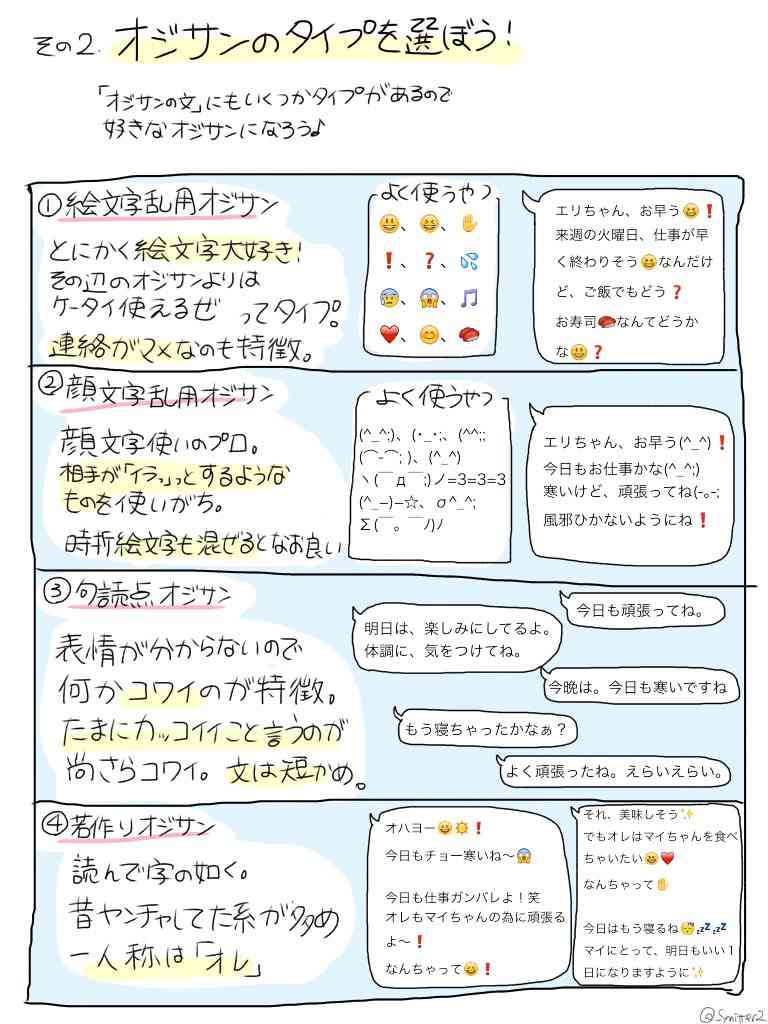 その2. オジサンのタイプを選ぼう！
「オジサンの文」にもいくつかタイプがあるので
好きなオジサンになろう♪
①絵文字乱用オジサン
とにかく絵文字大好き！
その辺のオジサンよりは
ケータイ使えるぜ ってタイプ。
連絡がマメなのも特徴。
よく使うやつ
😃、😆、✋
❗、❓、💦
😰、😱、🎵
❤️、😊、🍣
エリちゃん、お早う😆❗
来週の火曜日、仕事が早
く終わりそう😆なんだけ
ど、ご飯でもどう❓
お寿司🍣なんてどうか
な😃❓
②顔文字乱用オジサン
顔文字使いのプロ。
相手が「イラッ」っとするような
ものを使いがち。
時折絵文字も混ぜるとなお良い
よく使うやつ
(^_^;)、(・_・;、(^^;;
(⌒-⌒; )、(^_^)
ヽ(￣д￣;)ノ=3=3=3
(^_−)−☆、σ^_^;
Σ(￣。￣ﾉ)ﾉ
エリちゃん、お早う(^_^)❗
今日もお仕事かな(^_^;)
寒いけど、頑張ってね(-｡-;
風邪ひかないようにね❗
③句読点オジサン
表情が分からないので
何かコワイのが特徴。
たまにカッコイイこと言うのが
尚さらコワイ。文は短かめ。
今日も頑張ってね。
明日は、楽しみにしてるよ。
体調に、気をつけてね。
今晩は。今日も寒いですね
もう寝ちゃったかなぁ？
よく頑張ったね。えらいえらい。
④若作りオジサン
読んで字の如く。
昔ヤンチャしてた系が多め
一人称は「オレ」
オハヨー😄☀️❗
今日もチョー寒いね〜😱
今日も仕事ガンバレよ！笑
オレもマイちゃんの為に頑張る
よ〜❗
なんちゃって😆❗
それ、美味しそう✨
でもオレはマイちゃんを食べ
ちゃいたい😆❤️
なんちゃって✋
今日はもう寝るね😴💤💤
マイにとって、明日もいい１
日になりますように✨